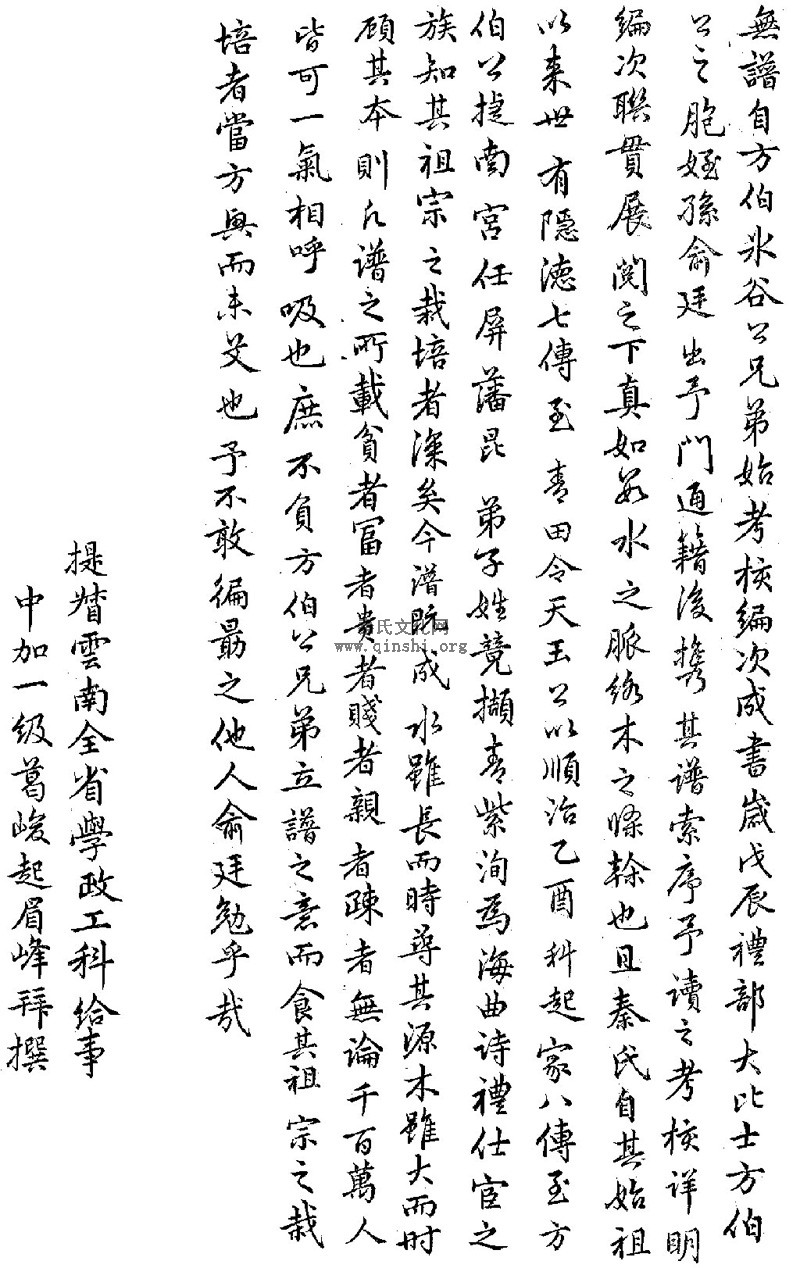 無譜自方伯氷谷公兄弟始考核編次成書歲戊辰禮部大比士方伯
公之胞姪孫俞廷出予門通籍後携其譜索序予讀之考核详明
編次聯貫展閱之下真如㸚水之脈络木之條榦也且秦氏自其始祖
以来世有隠德七傳至青田令天玉公以順治乙酉科起家八傳至方
伯公捷南宮任屏藩昆弟子姓競擷青紫洵為海曲诗禮仕宦之
族知其祖宗之栽培者深矣今譜既成水雖長而時尋其源木雖大而时
顾其本則凡谱之所載貧者冨者贵者賤者親者疎者無論千百萬人
皆可一氣相呼吸也庶不負方伯公兄弟立譜之意而食其祖宗之栽
培者當方興而未艾也予不敢徧勗之他人俞廷勉乎哉
提督雲南全省學政工科给事
中加一级葛峻起眉峰拜撰
氏文化网
www.qinshi.org